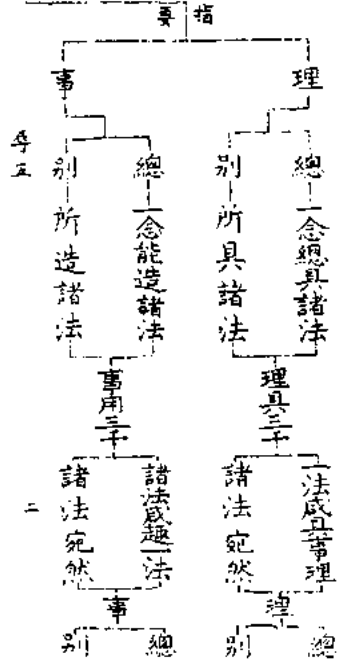 指要
理
總 一念總具諸法
別 所具諸法
理具三千
一法咸具事理
諸法宛然
理
總
別
事
總 一念能造諸法
別 所造諸法
事用三千
諸法咸趣一法
諸法宛然
事
總
別
二